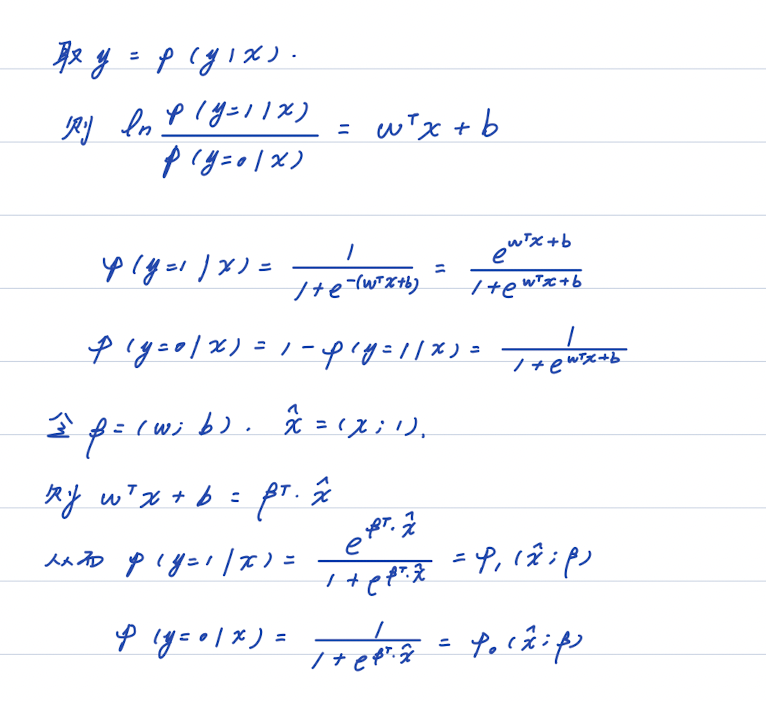 取 y = p(y|x).
则 ln p(y=1|x) / p(y=0|x) = wᵀx + b
p(y=1|x) = 1 / (1+e^(-(wᵀx+b))) = e^(wᵀx+b) / (1+e^(wᵀx+b))
p(y=0|x) = 1 - p(y=1|x) = 1 / (1+e^(wᵀx+b))
令 β = (w; b). x̂ = (x; 1).
则 wᵀx + b = βᵀ·x̂
从而 p(y=1|x) = e^(βᵀ·x̂) / (1+e^(βᵀ·x̂)) = p₁(x̂;β)
p(y=0|x) = 1 / (1+e^(βᵀ·x̂)) = p₀(x̂;β)